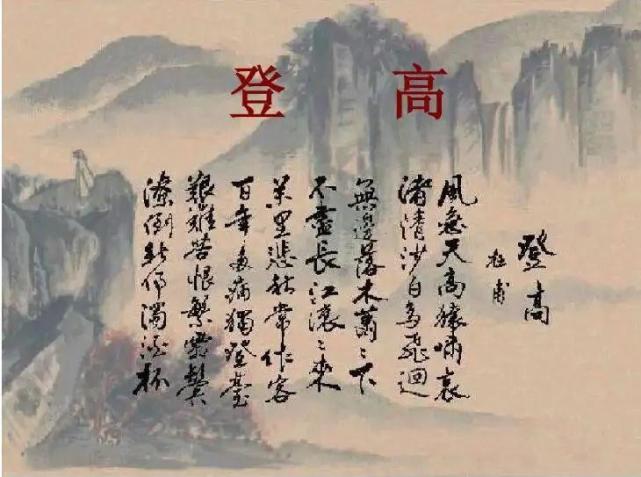 登高
登高
杜甫
風急天高猿嘯哀
渚清沙白鳥飛迴
無邊落木蕭〻下
不盡長江滾〻來
萬里悲秋常作客
百年多病獨登臺
艱難苦恨繁霜鬢
潦倒新停濁酒杯